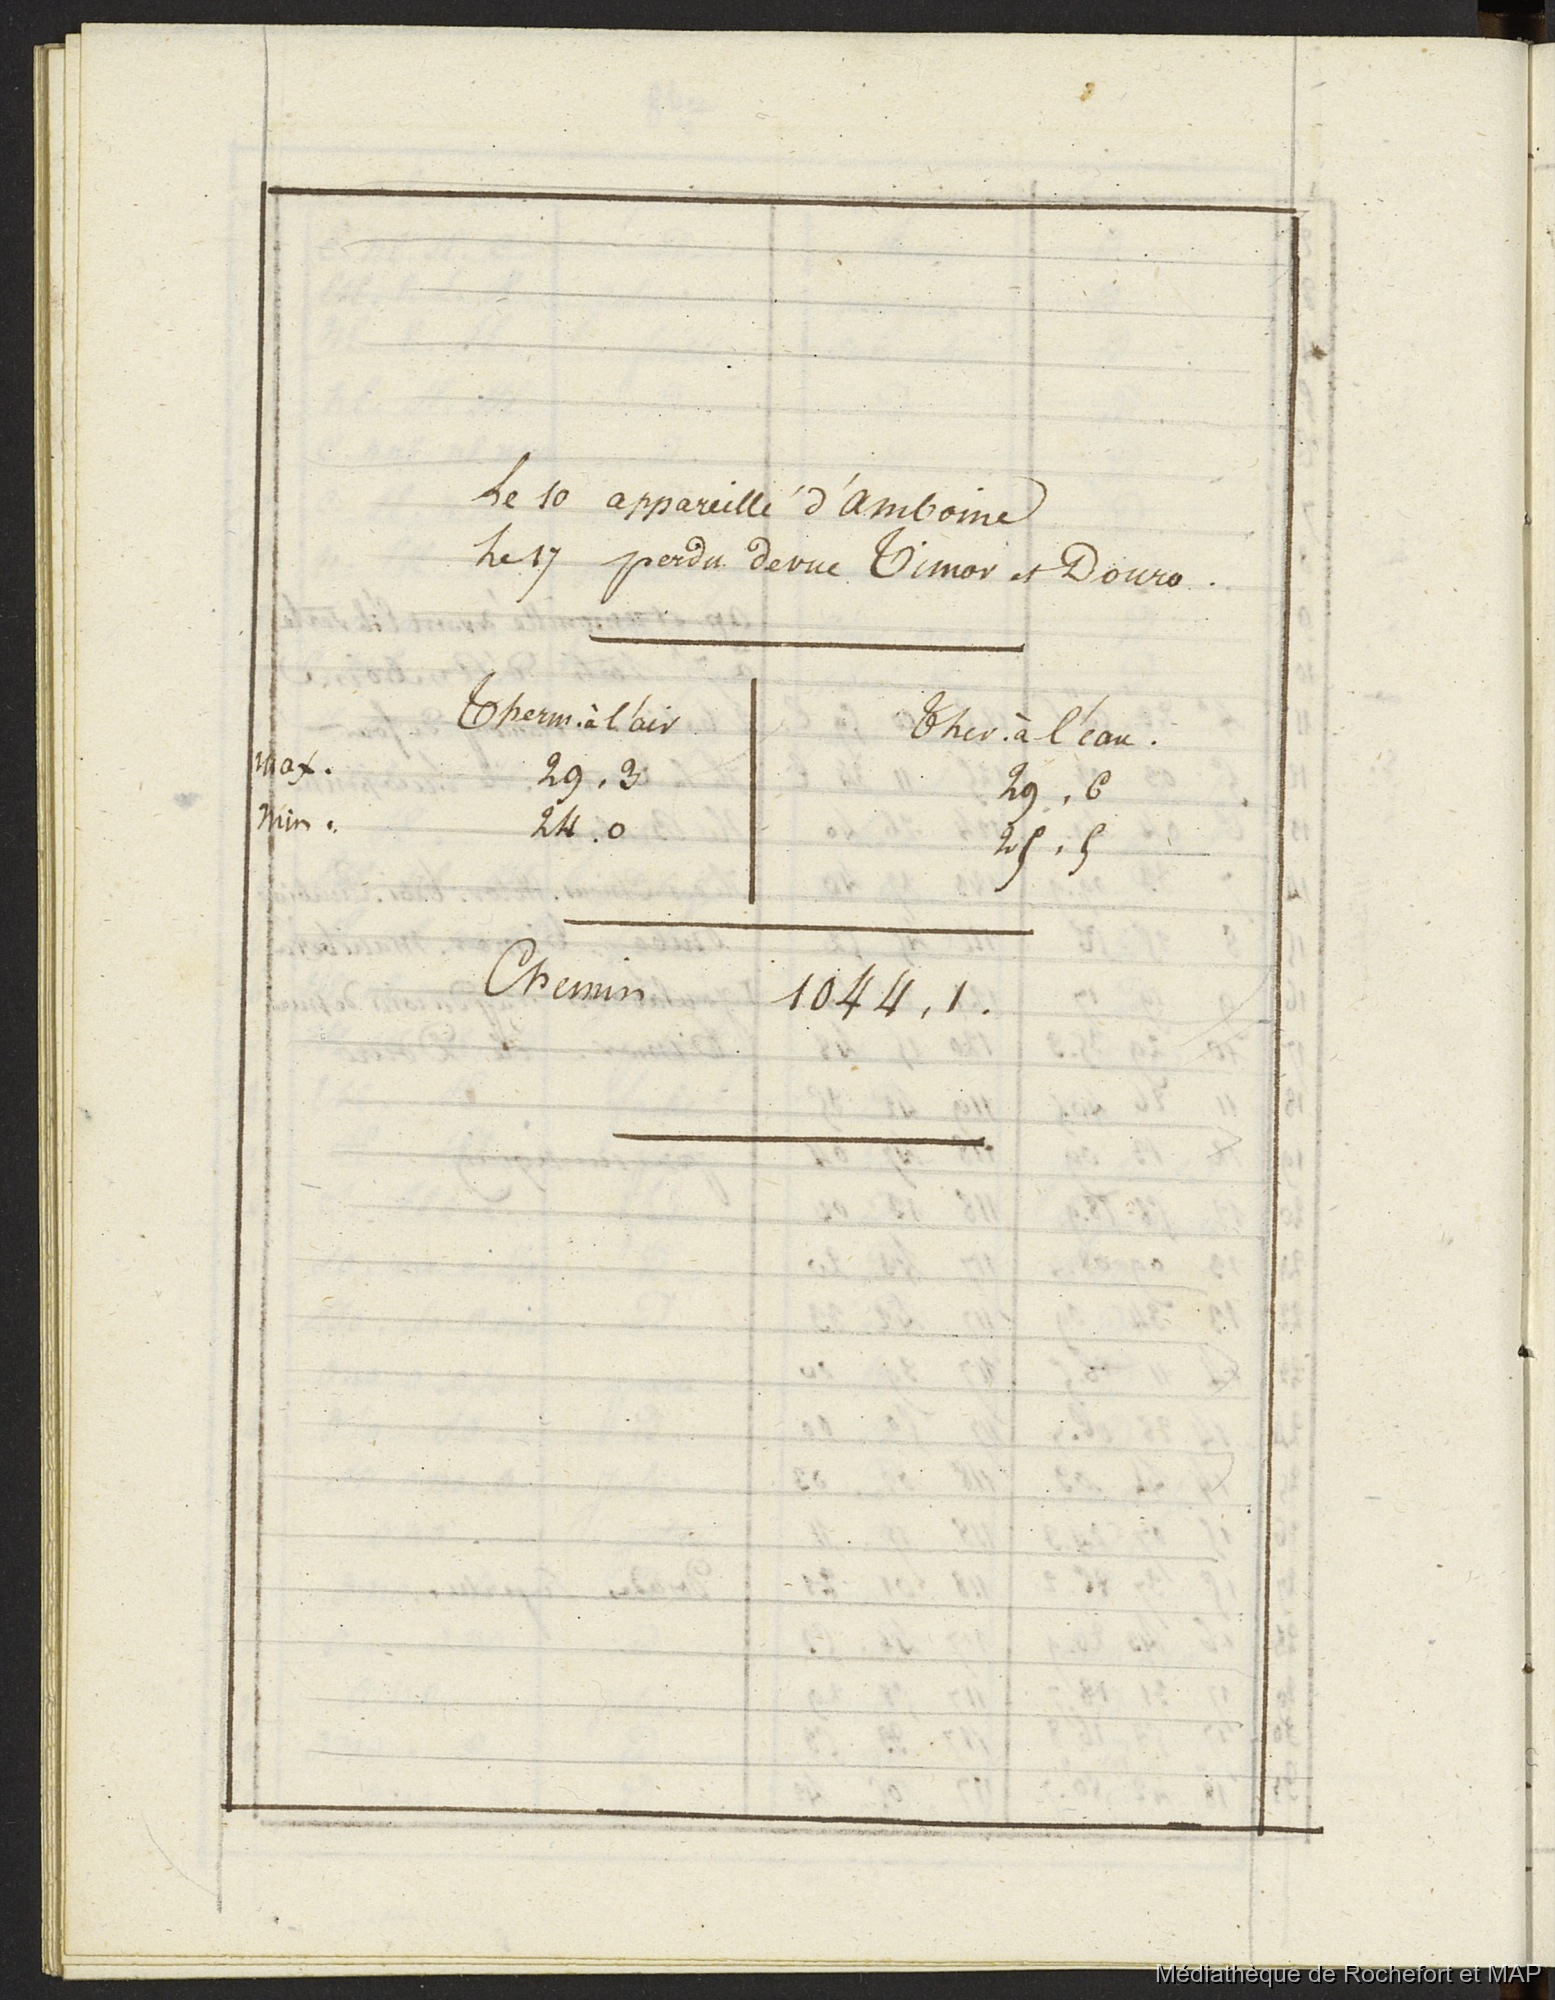 Le 10 appareillé d'Amboine
Le 17 perdu de vue Timor et Douro.
Therm. à l'air
Ther. à l'eau.
Max. 29,3 29,6
Min. 24.0 25,5
Chemin 1044,1.
Médiathèque de Rochefort et MAP